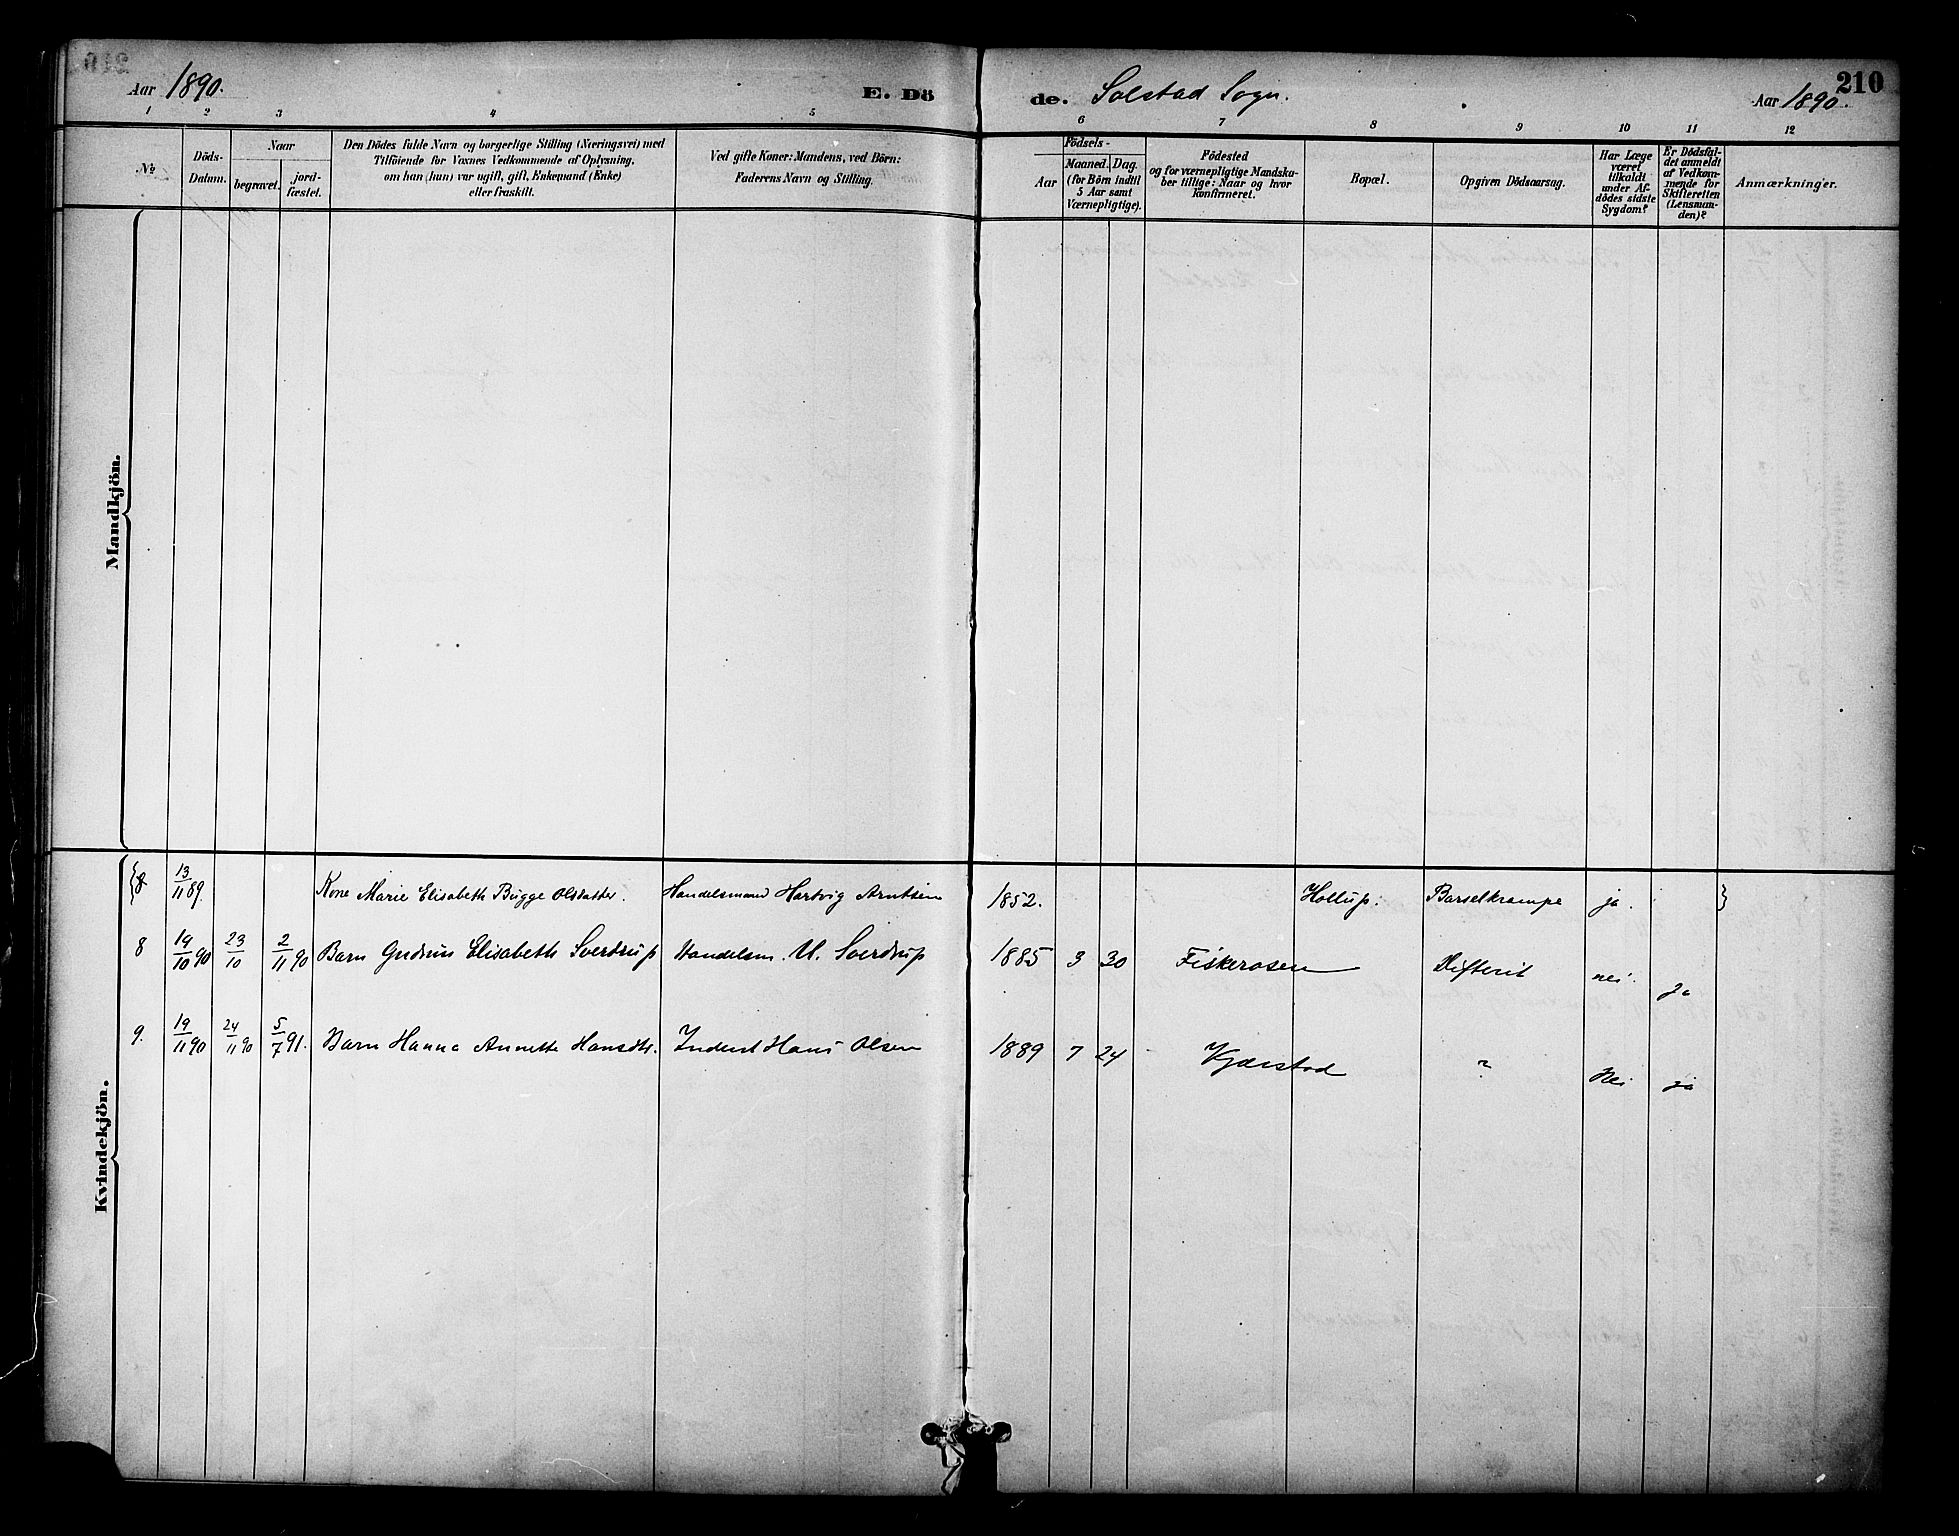 Aar 1890. E. Döde. Solstad Sogn. Aar 1890. 210
1 2 3 4 5 6 7 8 9 10 11 12
No
Döds-
Datum.
Naar
begravet.
jord-
fæstet.
Den Dödes fulde Navn og borgerlige Stilling (Næringsvei) med
Tilföiende for Voxnes Vedkommende af Oplysning,
om han (hun) var ugift, gift, Enkemand (Enke)
eller fraskilt.
Ved gifte Koner: Mandens, ved Börn:
Faderens Navn og Stilling.
Födsels-
Aar
Maaned. Dag.
(for Börn indtil
5 Aar samt
Værnepligtige).
Födested
og for værnepligtige Mandska-
ber tillige: Naar og hvor
konfirmeret.
Bopæl.
Opgiven Dödsaarsag.
Har Læge
været
tilkaldt
under Af-
dödes sidste
Sygdom?
Er Dödsfal-
det anmeldt
af Vedkom-
mende for
Skifteretten
(Lensman-
den)?
Anmærkninger.
Mandkjön.
Kvindekjön.
{8 13/11 89. Kone Marie Elisabeth Bugge Olsdatter. Handelsmand Hartvig Arntsen 1852. Hollup. Barselkrampe ja. }
8 19/10 90 23/10 2/11 90 Barn Gudrun Elisabeth Sverdrup Handelsm. U. Sverdrup 1885 3 30 Fiskerosen Difterit nei. ja
9. 19/11 90 24/11 90 5/7 91. Barn Hanna Annette Hansdtr. Inderst Hans Olsen 1889 7 24 Kjærstad ? Nei ja